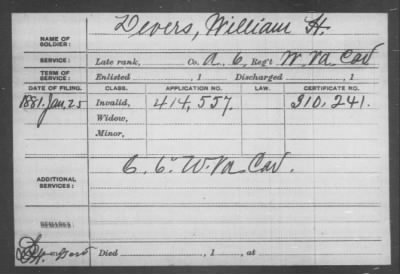 NAME OF SOLDIER: Devers, William H.
SERVICE: Late rank, Co. A. 6, Reg't W. Va Cav
TERM OF SERVICE: Enlisted , 1 Discharged , 1
DATE OF FILING. CLASS. APPLICATION NO. LAW. CERTIFICATE NO.
1881. Jan. 25 Invalid, 414,557. 310,241.
Widow,
Minor,
ADDITIONAL SERVICES: C. 6" W. Va Cav.
REMARKS:
Died , 1 , at